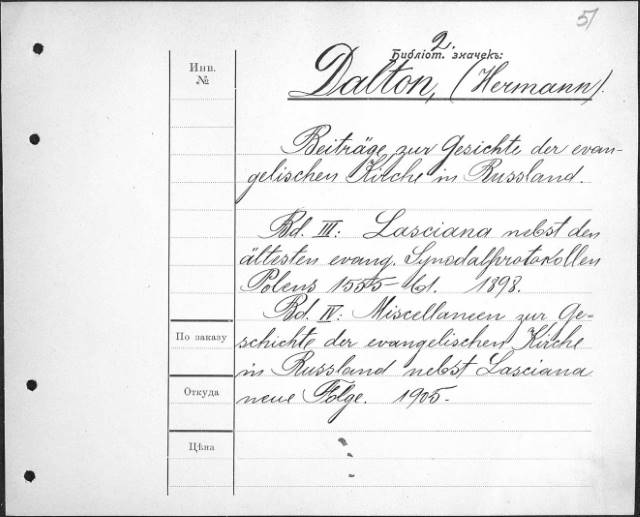 51
2.
Библіот. значекъ:
Инв.
№
Dalton, (Hermann).
Beiträge zur Gesichte der evan-
gelischen Kirche in Russland.
Bd. III: Lasciana nebst den
ältesten evang. Synodalprotokollen
Polens 1555-61. 1898.
Bd. IV: Miscellaneen zur Ge-
По заказу
schichte der evangelischen Kirche
in Russland nebst Lasciana
Откуда
neue Folge. 1905.
Цѣна